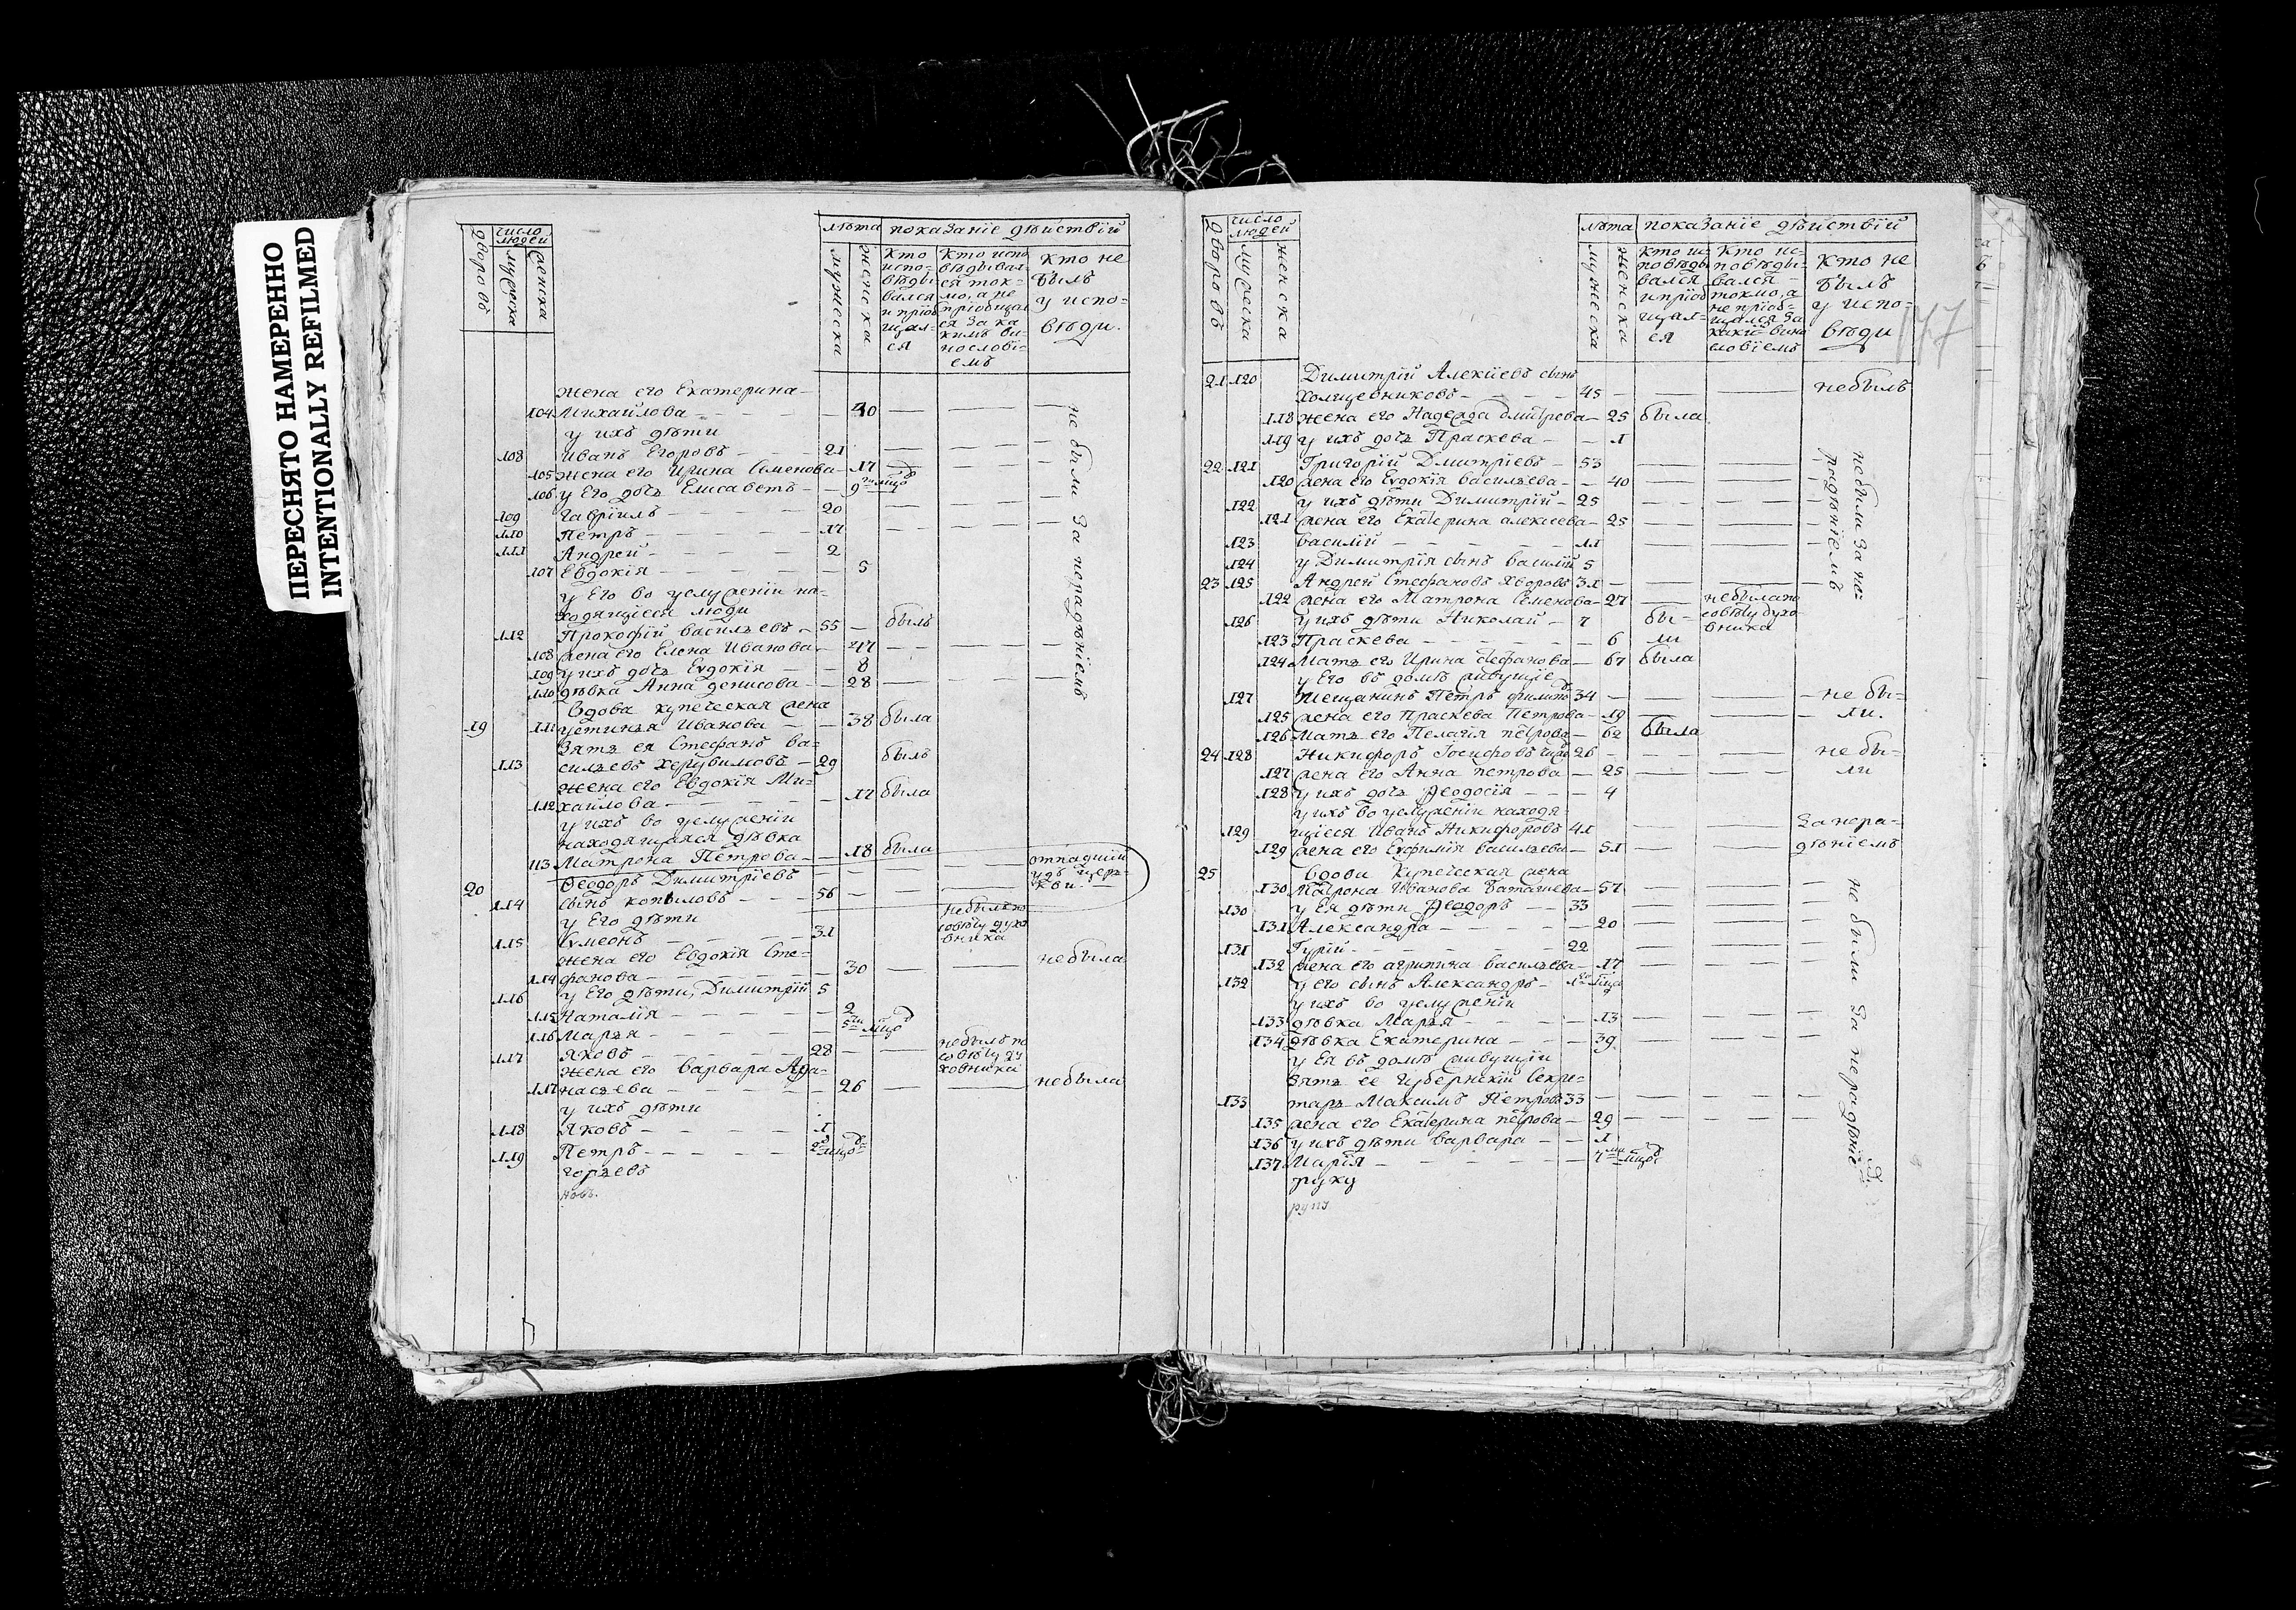 ПЕРЕСНЯТО НАМЕРЕННО
INTENTIONALLY REFILMED
дворовъ
число людей
мужеска
женска
лѣта
показанїе дѣйствїй
мужеска
женска
кто испо-
вѣды
вался
и прїоб
щал-
ся
кто испо
вѣдывал-
ся ток-
мо, а не
прїобщал
ся за ка
кимъ ви-
нословї-
емъ
кто не
былъ
у испо-
вѣди.
жена его Екатерина
104 Михайлова 40
у ихъ дѣти
108 Иванъ Егоровъ 21
105 жена его Ирина Семенова 17
106 у Его дочь Елисаветъ 9
109 Гаврїилъ 20
110 Петръ 17
111 Андрей 2
107 Евдокїя 5
не были за нерадѣнїемъ
у Его во услуженїи на-
ходящїеся люди
112 Прокофїй васильевъ 55 былъ
108 жена его Елена Иванова 47
109 у ихъ дочь Еvдокїя 8
110 дѣвка Анна денисова 28
вдова купеческая жена
19 111 устинья Иванова 38 была
зять ея Стефанъ ва-
113 сильевъ Херувимовъ 29 былъ
жена его Евдокїя Ми-
112 хаилова 17 была
у ихъ во услуженїи
находящаяся дѣвка
113 Матрона Петрова 18 была
20 Ѳеодоръ Димитрїевъ
114 сынъ копыловъ 56 отпадшїй изъ церкви
у Его дѣти
115 Сvмеонъ 31 небылъ по совѣту духовника
жена его Евдокїя Сте-
114 фанова 30 небыла
116 у Его дѣти, Димитрїй 5
115 Наталїя 2
116 Марья 5
117 Яковъ 28 небылъ по совѣту духовника
жена его варвара Аѳа-
117 насьева 26 небыла
у ихъ дѣти
118 Яковъ 1
119 Петръ 2
горьевъ
147
дворовъ
число людей
мужеска
женска
лѣта
показанїе дѣйствїй
мужеска
женска
кто ис-
повѣды
вался
и прїоб
щал-
ся
кто ис-
повѣды-
вался
токмо, а
не прїоб-
щался за
каки- вино
словїемъ
кто не
былъ
у испо-
вѣди
21 120 Димитрїй Алекїевъ сынъ
Холщевниковъ 45 небылъ
118 жена его Надежда дмитрева 25 была
119 у ихъ дочь Праскева 1
22 121 Григорїй Дмитрїевъ 53
120 жена его Еvдокїя васильева 40
122 у ихъ дѣти Димитрїй 25
121 жена его Екатерина алексеева 25
123 василїй 11
124 у Димитрїя сынъ василїй 5
не были за не-
радѣнїемъ
23 125 Андрей Стефановъ Хворовъ 31
122 жена его Матрона Семенова 27 небыла по
совѣту духо
вника
126 у ихъ дѣти Николай 7 бы-
123 Праскева 6 ли
124 Мать его Ирина стефанова 67 была
у Его въ домѣ живущїе
127 Мещанинъ Петръ 34 не бы-
125 жена его Праскева Петрова 19 ли.
126 Мать его Пелагїя петрова 62 была
24 128 Никифоръ Їосифовъ 26 не бы-
127 жена его Анна петрова 25 ли
128 у ихъ дочь Ѳеодосїя 4
у ихъ во услуженїи находя-
129 щїеся Иванъ Никифоровъ 41 за нера-
129 жена его Еvфимїя васильева 51 дѣнїемъ
25 вдова Купеческая жена
130 Матрона Иванова Баташева 57
130 у Ея дѣти Ѳеодоръ 33
131 Александра 20
131 Гурїй 22
132 жена его агрипина васильева 17
132 у его сынъ Александръ
у ихъ во услуженїи
133 дѣвка Марья 13
134 дѣвка Екатерина 39
у Ея въ домѣ живущїй
зять ее Губернскїй Секре-
133 тарь Максимъ Петровъ 33
135 жена его Екатерина петрова 29
136 у ихъ дѣти варвара 1
137 Марїя 7
не были за нерадѣнїе
руку